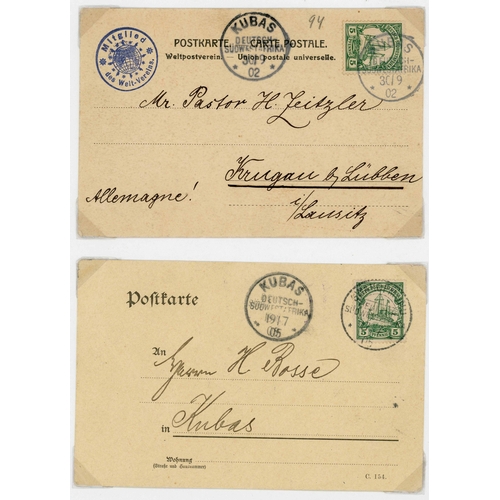 94
Mitglied
des Welt-Vereins.
KUBAS
DEUTSCH-
SÜDWESTAFRIKA
30/9
02
5
5
KUBAS
DEUTSCH-
SÜDWESTAFRIKA
30/9
02
POSTKARTE. CARTE POSTALE.
Weltpostverein. Union postale universelle.
Mr. Pastor H. Zeitzler
Krugau b/Lübben
Allemagne!
i/Lausitz
KUBAS
DEUTSCH-
SÜDWESTAFRIKA
19/7
05
5
5
Postkarte
An
Herrn H Bosse
in Kubas
Wohnung
(Straße und Hausnummer)
C. 154.